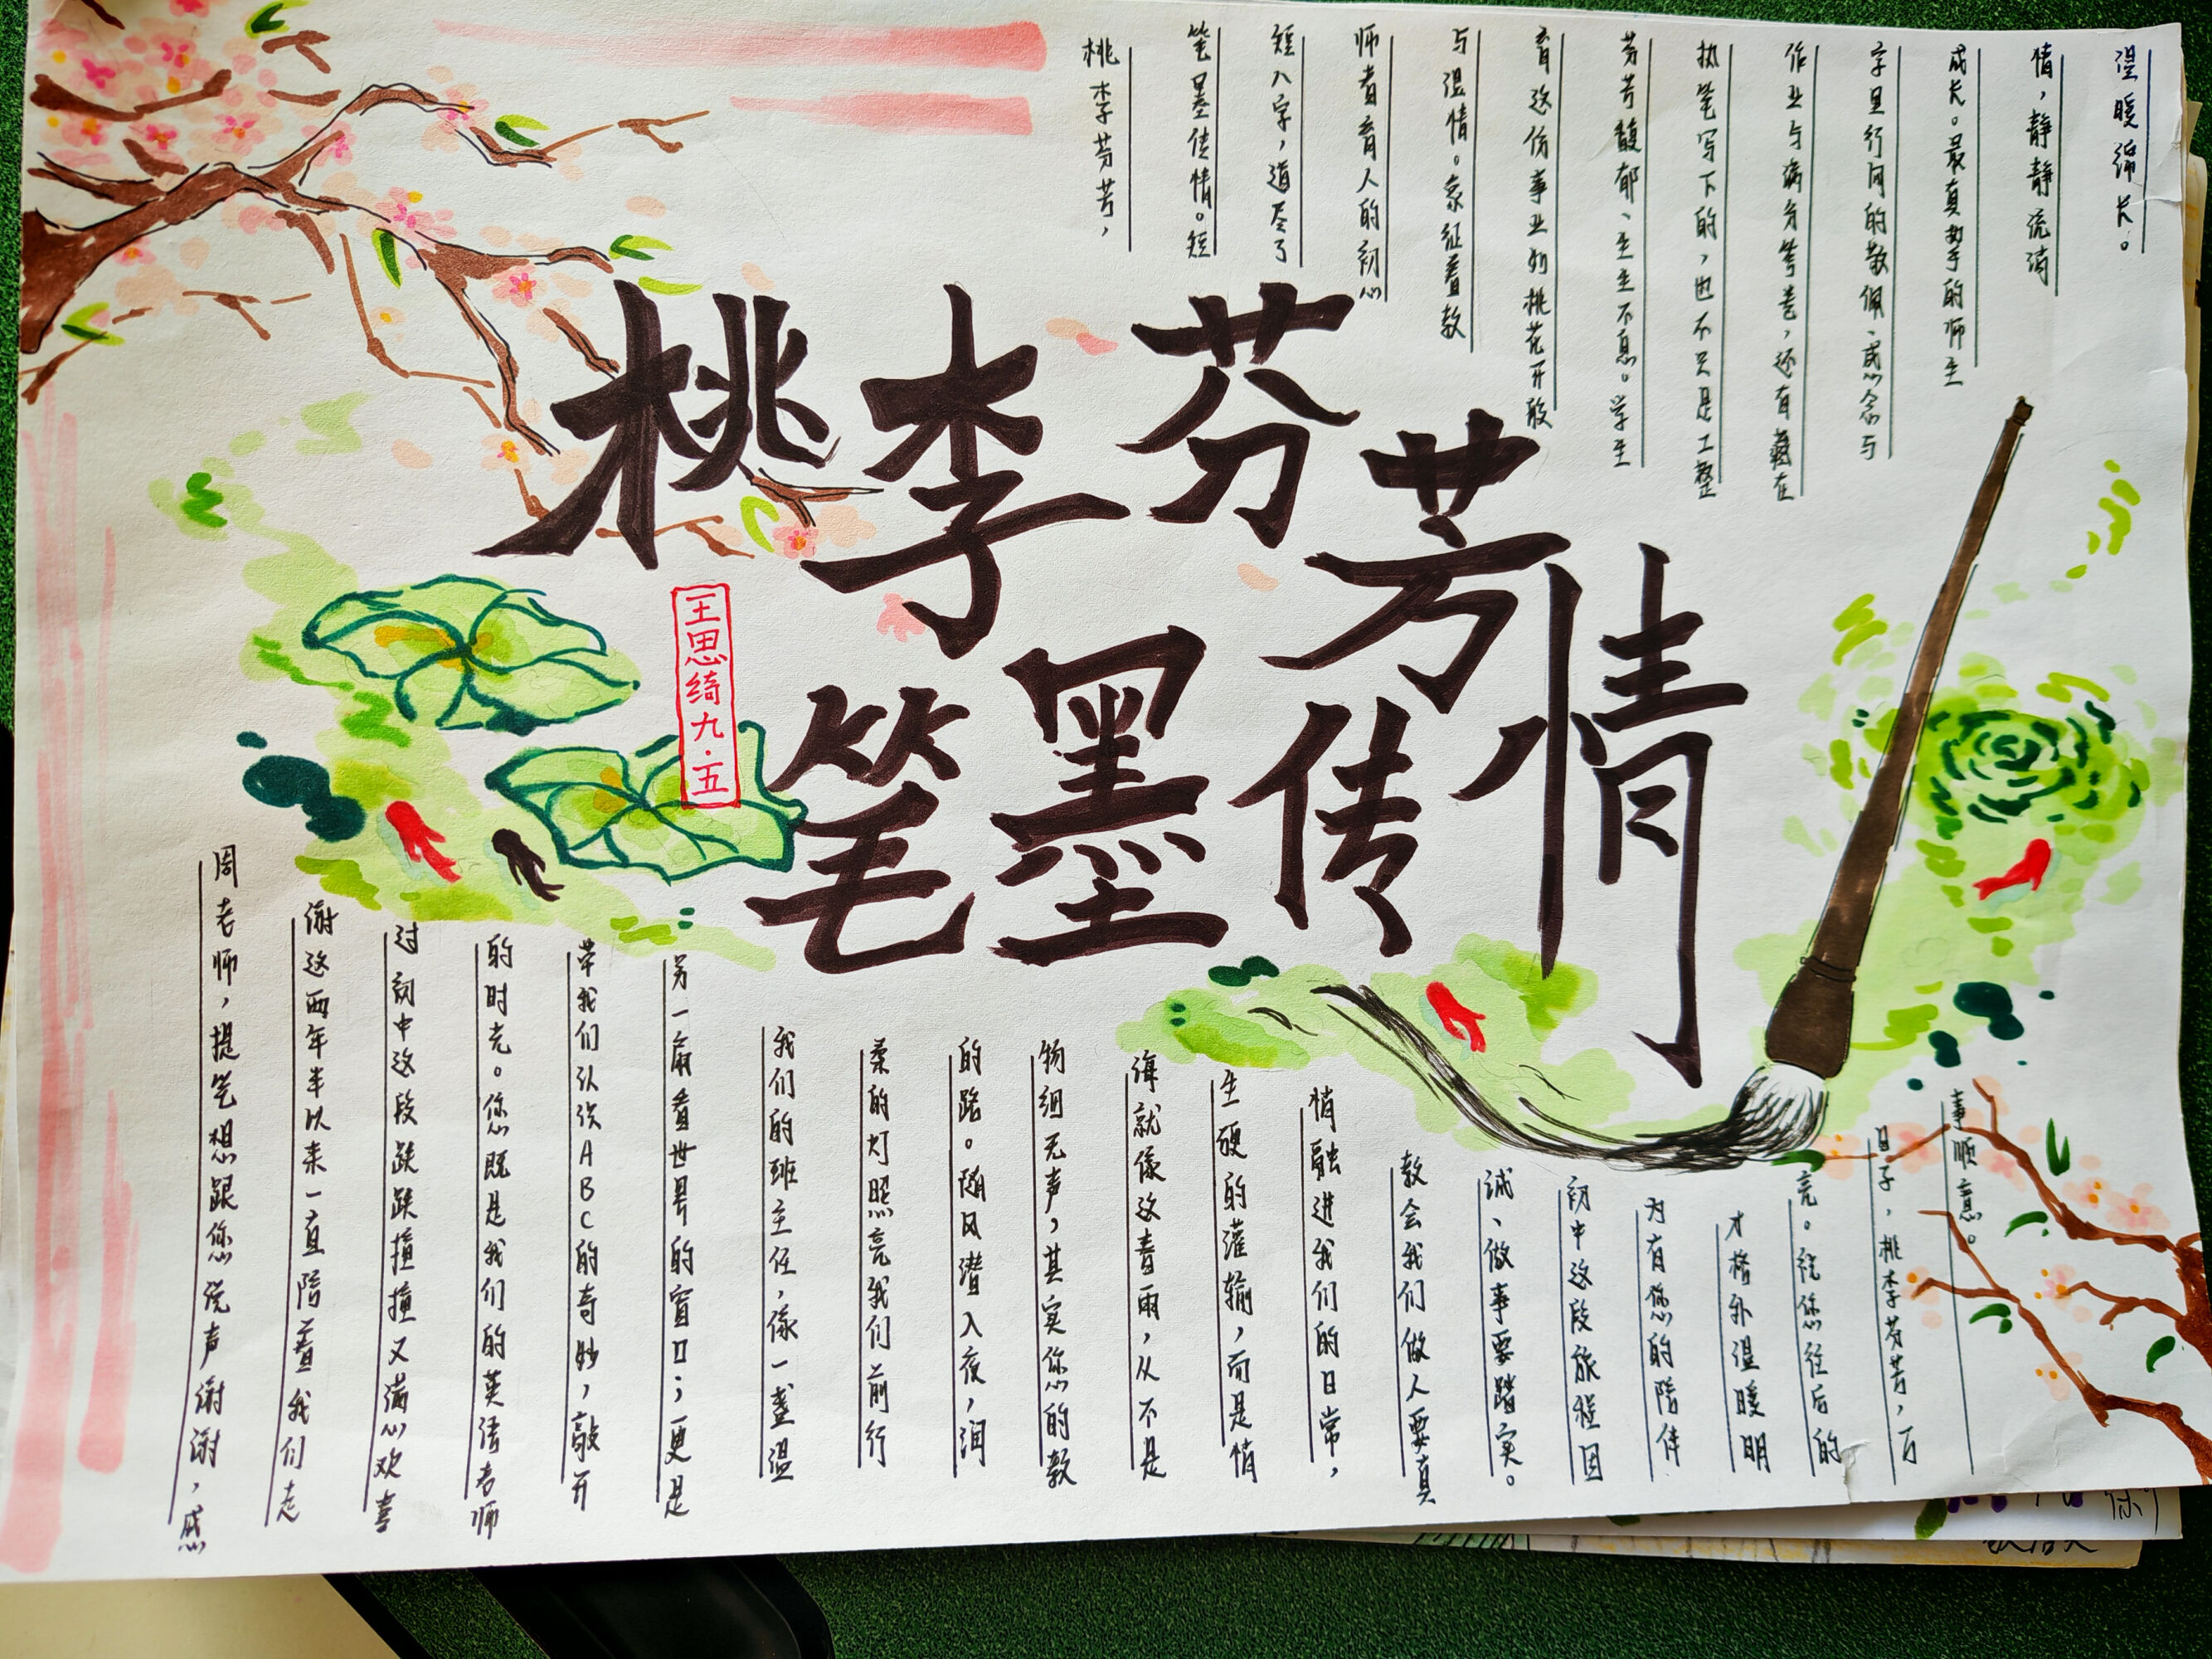 桃李芬芳
笔墨传情
王思绮九·五
桃李芬芳,
笔墨传情。短
短八字,道尽了
师者育人的初心
与温情。象征着教
育这份事业如桃花开般
芬芳馥郁、生生不息。学生
执笔写下的,也不只是工整
作业与满分答卷,还有藏在
字里行间的敬佩、感念与
成长。最真挚的师生
情,静静流淌
温暖绵长。
周老师,提笔想跟您说声谢谢,感
谢这两年半以来一直陪着我们走
过初中这段跌跌撞撞又满心欢喜
的时光。您既是我们的英语老师
带我们认识ABC的奇妙,敲开
另一扇看世界的窗口;更是
我们的班主任,像一盏温
柔的灯照亮我们前行
的路。随风潜入夜,润
物细无声,其实您的教
诲就像这春雨,从不是
生硬的灌输,而是悄
悄融进我们的日常,
教会我们做人要真
诚、做事要踏实。
初中这段旅程因
为有您的陪伴
才格外温暖明
亮。祝您往后的
日子,桃李芬芳,万
事顺意。